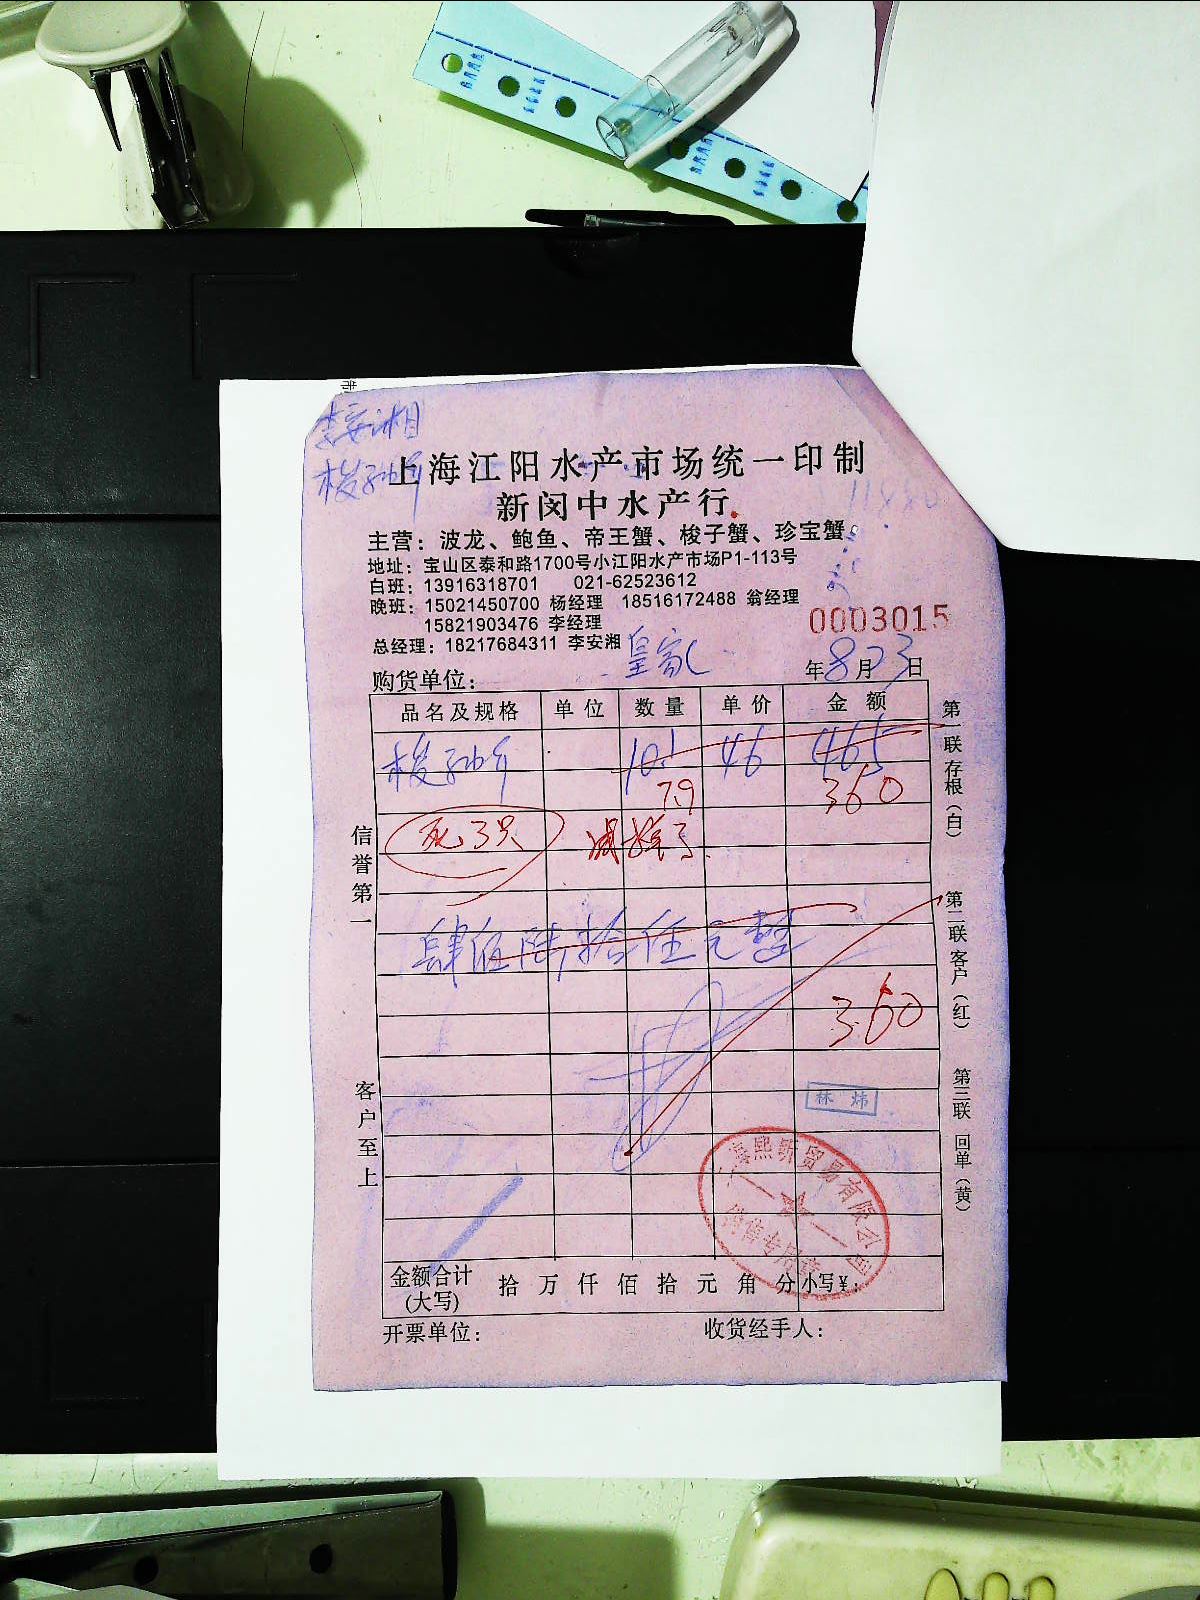 李安湘
梭子蟹
上海江阳水产市场统一印制
新闵中水产行
主营：波龙、鲍鱼、帝王蟹、梭子蟹、珍宝蟹
地址：宝山区泰和路1700号小江阳水产市场P1-113号
白班：13916318701 021-62523612
晚班：15021450700 杨经理 18516172488 翁经理
15821903476 李经理
总经理：18217684311 李安湘
0003015
购货单位：皇家
年8月23日
品名及规格 单位 数量 单价 金额
梭子蟹 10.1 46 465
7.9 360
死3只
肆佰陆拾伍元整
360
林炜
熙新贸易有限公司
销售专用章
金额合计(大写) 拾 万 仟 佰 拾 元 角 分 小写¥：
开票单位： 收货经手人：
信誉第一
客户至上
第一联 存根（白）
第二联 客户（红）
第三联 回单（黄）